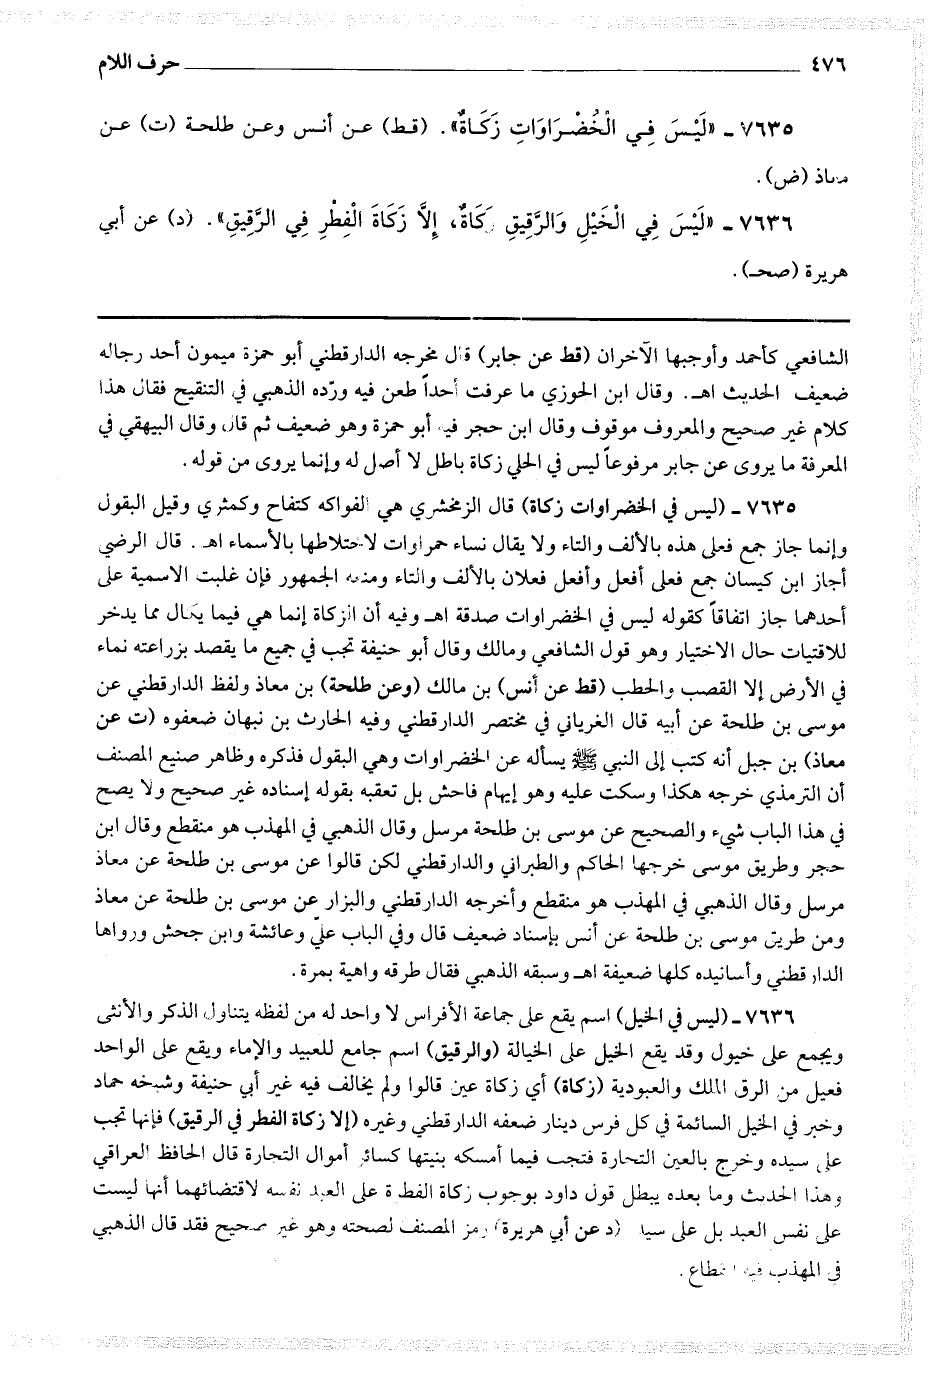 ٤٧٦ حرف اللام
٧٦٣٥ ـ «لَيْسَ فِي الْخُضْرَاوَاتِ زَكَاةٌ». (قط) عن أنس وعن طلحة (ت) عن
معاذ (ض).
٧٦٣٦ ـ «لَيْسَ فِي الْخَيْلِ وَالرَّقِيقِ زَكَاةٌ، إِلَّا زَكَاةَ الْفِطْرِ فِي الرَّقِيقِ». (د) عن أبي
هريرة (صحـ).
الشافعي كأحمد وأوجبها الآخران (قط عن جابر) قال مخرجه الدارقطني أبو حمزة ميمون أحد رجاله
ضعيف الحديث اهـ. وقال ابن الجوزي ما عرفت أحداً طعن فيه وردّه الذهبي في التنقيح فقال هذا
كلام غير صحيح والمعروف موقوف وقال ابن حجر فيه أبو حمزة وهو ضعيف ثم قال وقال البيهقي في
المعرفة ما يروى عن جابر مرفوعاً ليس في الحلي زكاة باطل لا أصل له وإنما يروى من قوله.
٧٦٣٥ ـ (ليس في الخضراوات زكاة) قال الزمخشري هي الفواكه كتفاح وكمثري وقيل البقول
وإنما جاز جمع فعلى هذه بالألف والتاء ولا يقال نساء حمراوات لاختلاطها بالأسماء اهـ. قال الرضي
أجاز ابن كيسان جمع فعلى أفعل وأفعل فعلان بالألف والتاء ومنعه الجمهور فإن غلبت الاسمية على
أحدهما جاز اتفاقاً كقوله ليس في الخضراوات صدقة اهـ وفيه أن الزكاة إنما هي فيما يكال مما يدخر
للاقتيات حال الاختيار وهو قول الشافعي ومالك وقال أبو حنيفة تجب في جميع ما يقصد بزراعته نماء
في الأرض إلا القصب والحطب (قط عن أنس) بن مالك (وعن طلحة) بن معاذ ولفظ الدارقطني عن
موسى بن طلحة عن أبيه قال الغرياني في مختصر الدارقطني وفيه الحارث بن نبهان ضعفوه (ت عن
معاذ) بن جبل أنه كتب إلى النبي ﷺ يسأله عن الخضراوات وهي البقول فذكره وظاهر صنيع المصنف
أن الترمذي خرجه هكذا وسكت عليه وهو إيهام فاحش بل تعقبه بقوله إسناده غير صحيح ولا يصح
في هذا الباب شيء والصحيح عن موسى بن طلحة مرسل وقال الذهبي في المهذب هو منقطع وقال ابن
حجر وطريق موسى خرجها الحاكم والطبراني والدارقطني لكن قالوا عن موسى بن طلحة عن معاذ
مرسل وقال الذهبي في المهذب هو منقطع وأخرجه الدارقطني والبزار عن موسى بن طلحة عن معاذ
ومن طريق موسى بن طلحة عن أنس بإسناد ضعيف قال وفي الباب عليّ وعائشة وابن جحش ورواها
الدارقطني وأسانيده كلها ضعيفة اهـ وسبقه الذهبي فقال طرقه واهية بمرة.
٧٦٣٦ ـ (ليس في الخيل) اسم يقع على جماعة الأفراس لا واحد له من لفظه يتناول الذكر والأنثى
ويجمع على خيول وقد يقع الخيل على الخيالة (والرقيق) اسم جامع للعبيد والإماء ويقع على الواحد
فعيل من الرق الملك والعبودية (زكاة) أي زكاة عين قالوا ولم يخالف فيه غير أبي حنيفة وشيخه حماد
وخبر في الخيل السائمة في كل فرس دينار ضعفه الدارقطني وغيره (إلا زكاة الفطر في الرقيق) فإنها تجب
على سيده وخرج بالعين التجارة فتجب فيما أمسكه بنيتها كسائر أموال التجارة قال الحافظ العراقي
وهذا الحديث وما بعده يبطل قول داود بوجوب زكاة الفطرة على العبد نفسه لاقتضائهما أنها ليست
على نفس العبد بل على سيده (د عن أبي هريرة) رمز المصنف لصحته وهو غير صحيح فقد قال الذهبي
في المهذب فيه انقطاع.